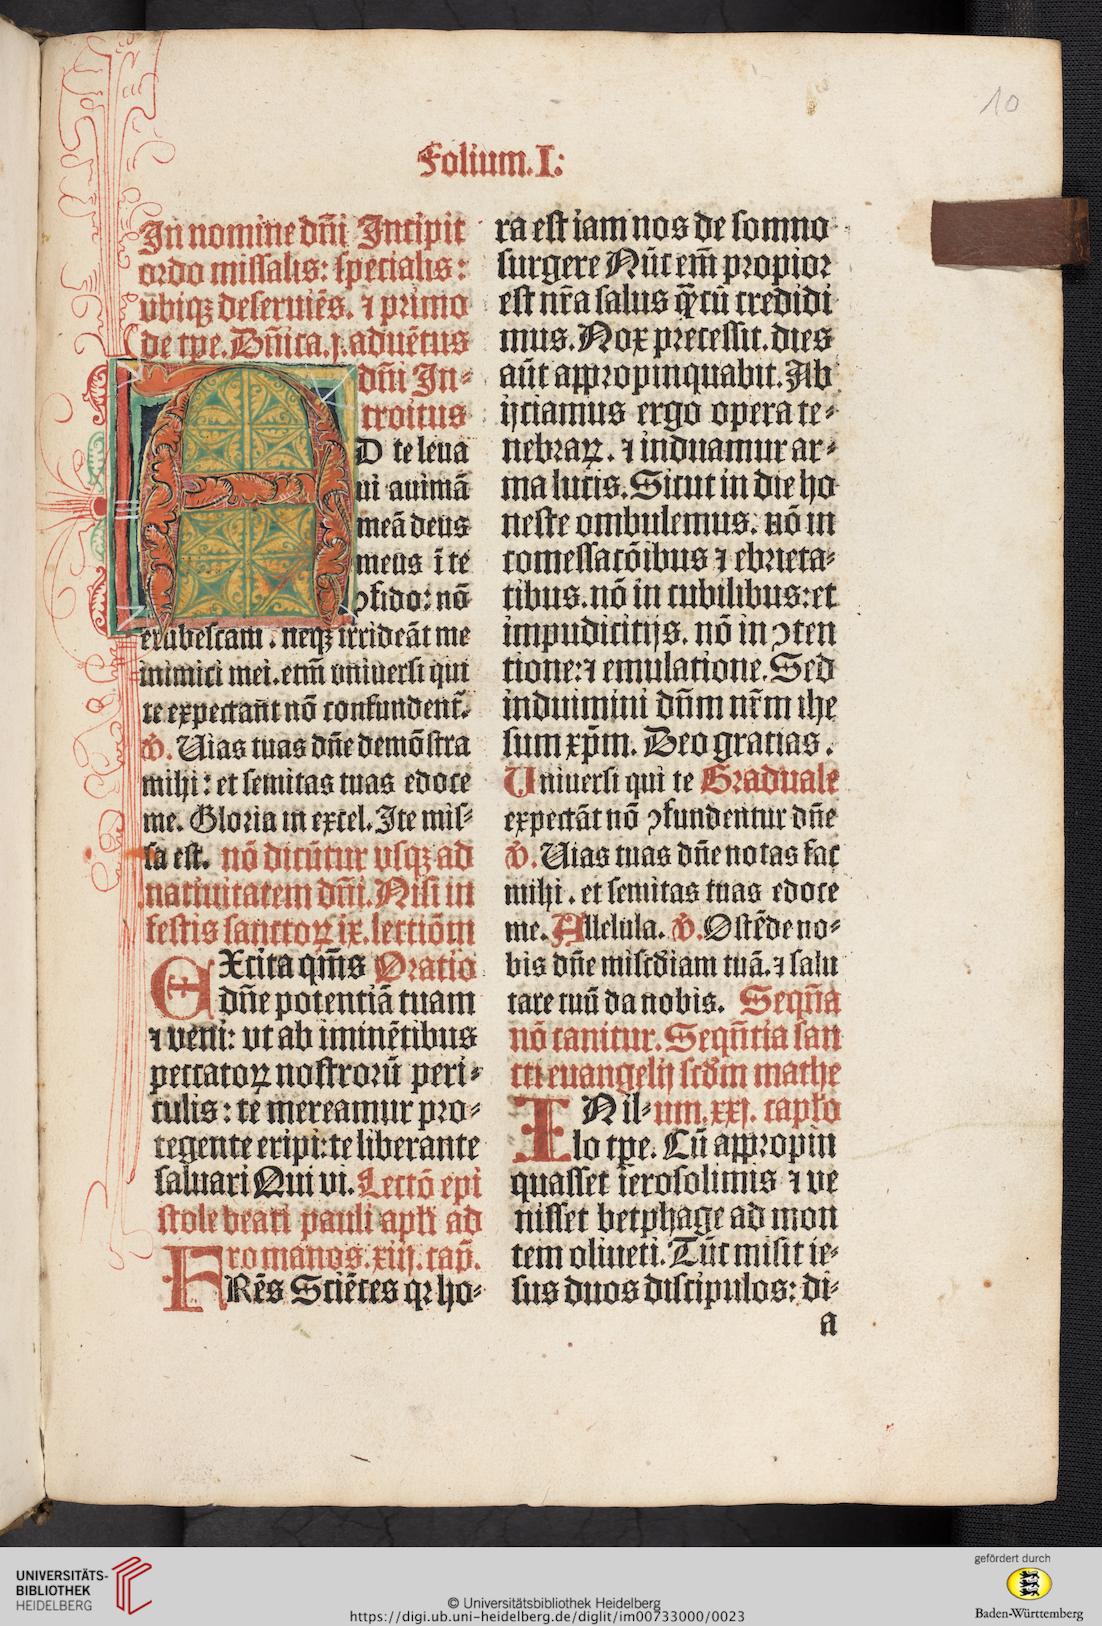 10
Folium.I:
In nomine dn̄i Incipit
ordo missalis: specialis:
vbiqꝫ deseruiēs. ⁊ primo
de tꝑe. Dn̄ica.j.aduētus
dn̄i In-
troitus
AD te leua
ui auimā
meā deus
meus ī te
ꝯfido: nō
erubescam. neqꝫ irrideāt me
inimici mei. etm̄ vniuersi qui
te expectan̄t nō confundent̄.
℣. Uias tuas dn̄e demōstra
mihi: et semitas tuas edoce
me. Gloria in excel. Ite mis-
sa est. nō dicūtur vsqꝫ ad
natiuitatem dn̄i. Nisi in
festis sanctoꝝ ix. lectiōm
EXcita qm̄s Oratio
dn̄e potentiā tuam
⁊ veni: vt ab iminētibus
peccatoꝝ nostrorū peri-
culis: te mereamur pro-
tegente eripi: te liberante
saluari Qui vi. Lectō epi
stole beati pauli apl̄i ad
romanos. xiij. cap̄.
FRēs Sciētes qꝛ ho-
ra est iam nos de somno
surgere Nūc em̄ propior
est nr̄a salus q̄ꝫ cū credidi
mus. Nox precessit. dies
aūt appropinquabit. Ab
ijciamus ergo opera te-
nebraꝝ. ⁊ induamur ar-
ma lucis. Sicut in die ho
neste ombulemus. nō in
comessatōibus ⁊ ebrieta-
tibus. nō in cubilibus: et
impudicitijs. nō in ꝯten
tione: ⁊ emulatione. Sed
induimini dn̄m nr̄m ihe
sum xp̄m. Deo gratias.
Uniuersi qui te Graduale
expectāt nō ꝯfundentur dn̄e
℣. Uias tuas dn̄e notas fac
mihi. et semitas tuas edoce
me. Allelula. ℣. Ostēde no-
bis dn̄e misc̄diam tuā. ⁊ salu
tare tuū da nobis. Seqn̄a
nō canitur. Seqn̄tia san
cti euangelij scd̄m mathe
IN il- um. xxj. capl̄o
lo tꝑe. Cū appropin
quasset ierosolimis ⁊ ve
nisset betphage ad mon
tem oliueti. Tūc misit ie-
sus duos discipulos: di-
a
UNIVERSITÄTS-
BIBLIOTHEK
HEIDELBERG
© Universitätsbibliothek Heidelberg
https://digi.ub.uni-heidelberg.de/diglit/im00733000/0023
gefördert durch
Baden-Württemberg